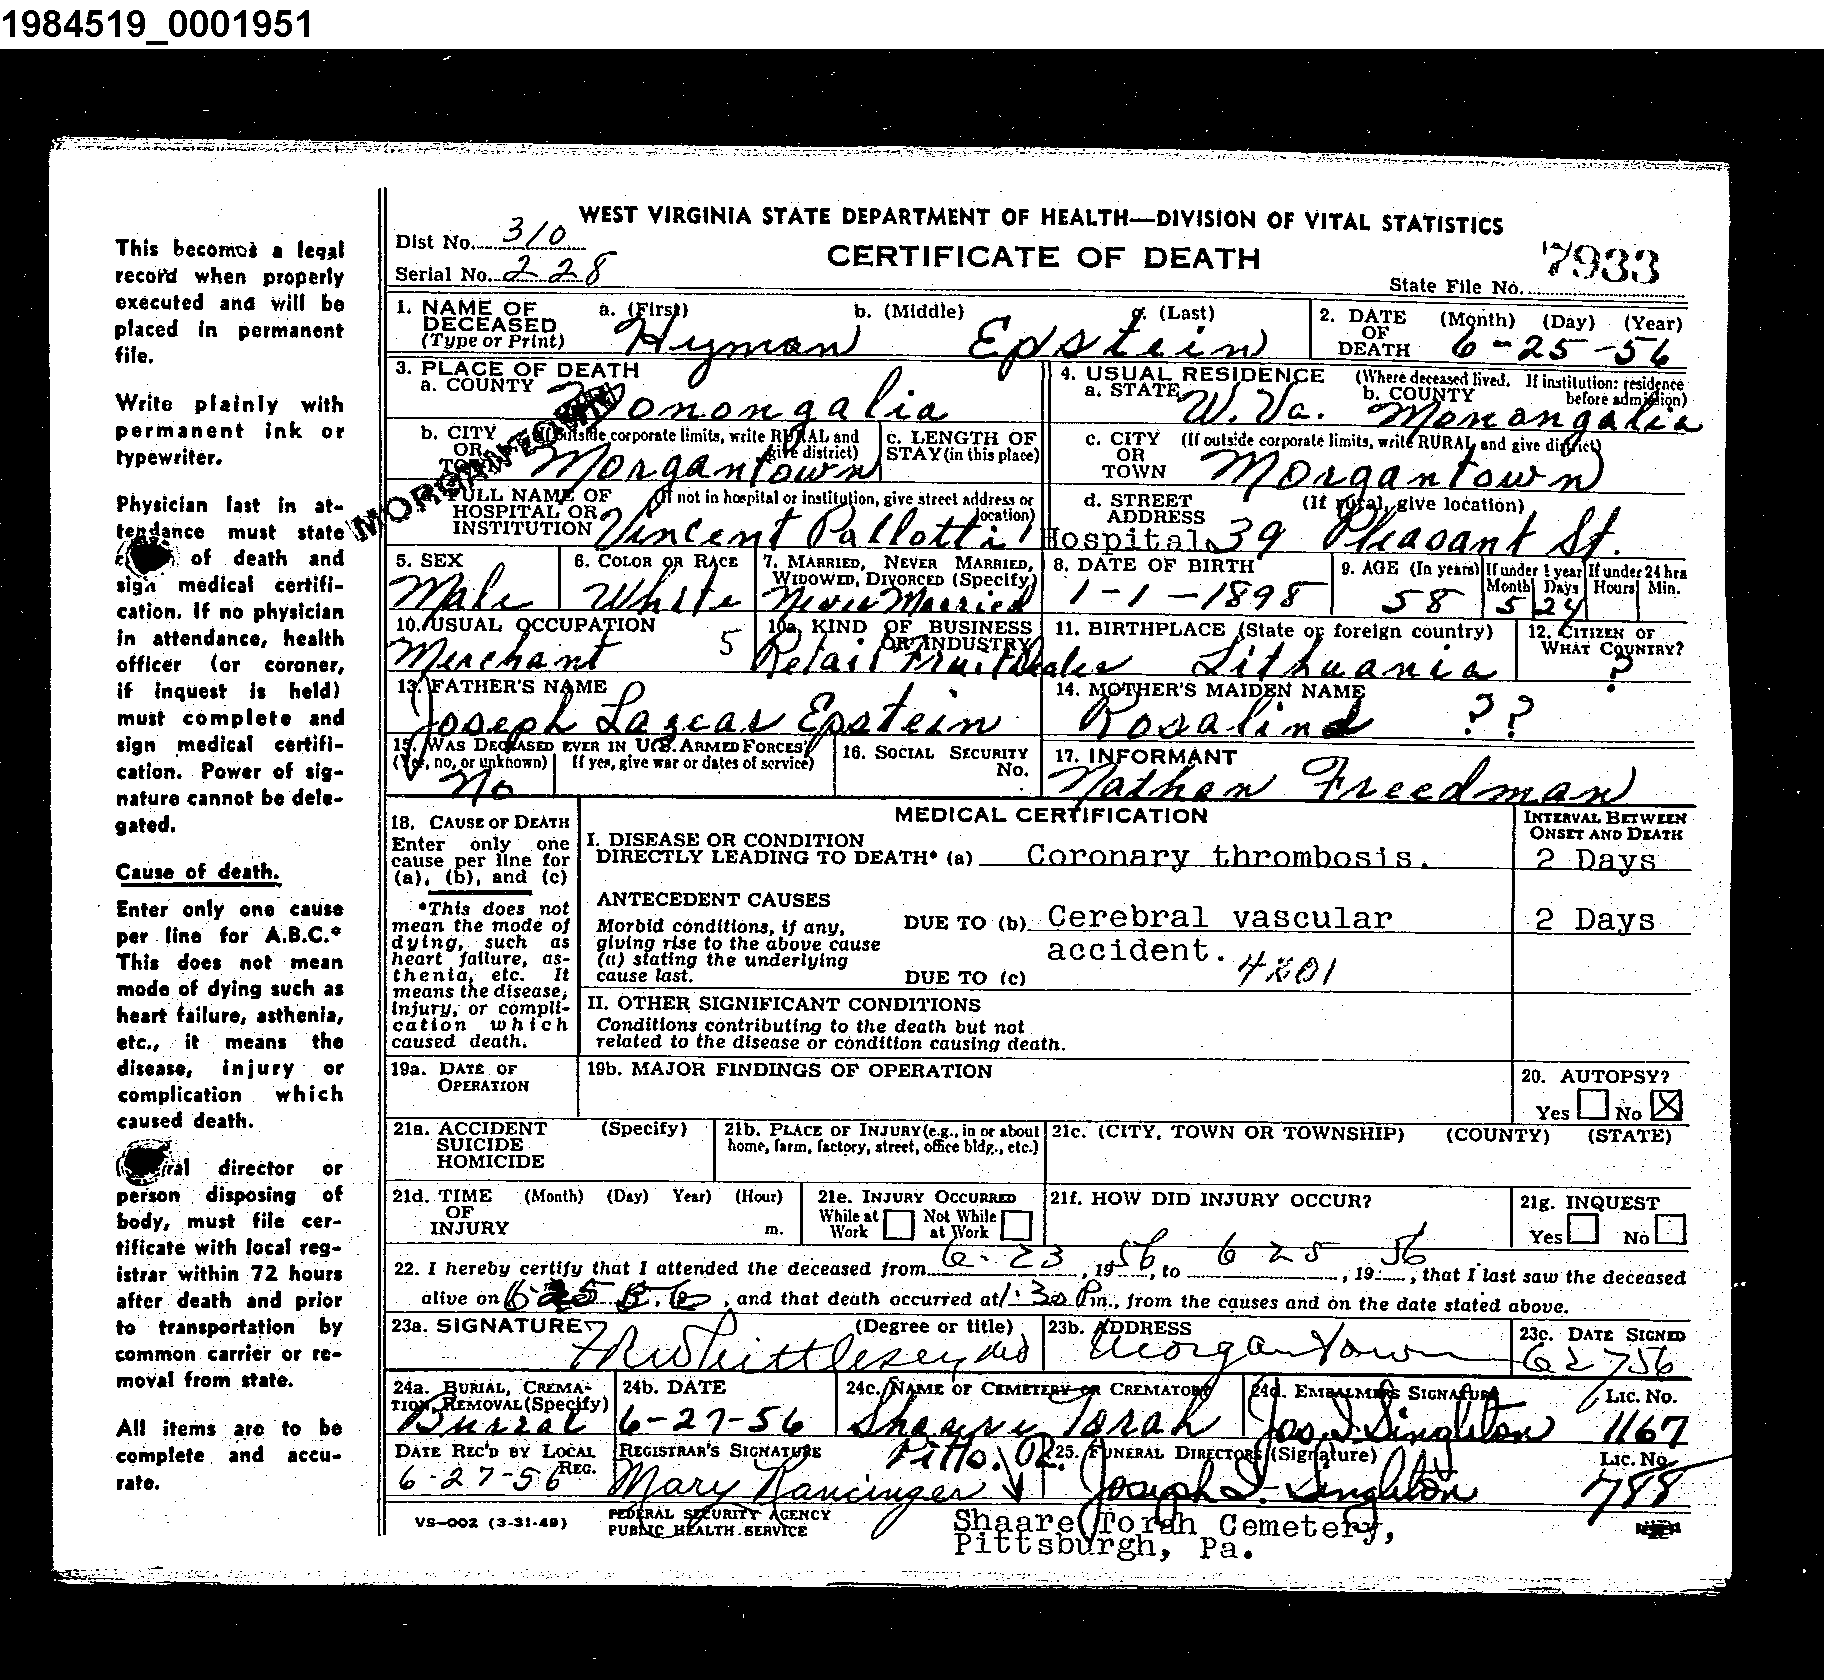 1984519_0001951
WEST VIRGINIA STATE DEPARTMENT OF HEALTH—DIVISION OF VITAL STATISTICS
CERTIFICATE OF DEATH
Dist No. 310
Serial No. 228
State File No. 7933
This becomes a legal
record when properly
executed and will be
placed in permanent
file.
Write plainly with
permanent ink or
typewriter.
Physician last in at-
tendance must state
of death and
sign medical certifi-
cation. If no physician
in attendance, health
officer (or coroner,
if inquest is held)
must complete and
sign medical certifi-
cation. Power of sig-
nature cannot be dele-
gated.
Cause of death.
Enter only one cause
per line for A.B.C.*
This does not mean
mode of dying such as
heart failure, asthenia,
etc., it means the
disease, injury or
complication which
caused death.
director or
person disposing of
body, must file cer-
tificate with local reg-
istrar within 72 hours
after death and prior
to transportation by
common carrier or re-
moval from state.
All items are to be
complete and accu-
rate.
1. NAME OF DECEASED (Type or Print) a. (First) b. (Middle) c. (Last)
Hyman Epstein
2. DATE OF DEATH (Month) (Day) (Year)
6-25-56
3. PLACE OF DEATH
a. COUNTY Monongalia
MORGANTOWN
4. USUAL RESIDENCE (Where deceased lived. If institution: residence before admission)
a. STATE W. Va. b. COUNTY Monongalia
b. CITY OR TOWN (If outside corporate limits, write RURAL and give district) Morgantown
c. LENGTH OF STAY (in this place)
c. CITY OR TOWN (If outside corporate limits, write RURAL and give district) Morgantown
FULL NAME OF HOSPITAL OR INSTITUTION (If not in hospital or institution, give street address or location) Vincent Pallotti Hospital
d. STREET ADDRESS (If rural, give location) 39 Pleasant St.
5. SEX Male
6. COLOR OR RACE White
7. MARRIED, NEVER MARRIED, WIDOWED, DIVORCED (Specify) Never Married
8. DATE OF BIRTH 1-1-1898
9. AGE (In years) 58 If under 1 year Month 5 Days 24 If under 24 hrs Hours Min.
10. USUAL OCCUPATION Merchant 5
10a. KIND OF BUSINESS OR INDUSTRY Retail Fruit Dealer
11. BIRTHPLACE (State or foreign country) Lithuania
12. CITIZEN OF WHAT COUNTRY? ?
13. FATHER'S NAME Joseph Lazear Epstein
14. MOTHER'S MAIDEN NAME Rosalind ??
15. WAS DECEASED EVER IN U.S. ARMED FORCES?
(Yes, no, or unknown) If yes, give war or dates of service)
No
16. SOCIAL SECURITY No.
17. INFORMANT Nathan Freedman
18. CAUSE OF DEATH
Enter only one
cause per line for
(a), (b), and (c)
*This does not
mean the mode of
dying, such as
heart failure, as-
thenia, etc. It
means the disease,
injury, or compli-
cation which
caused death.
MEDICAL CERTIFICATION
INTERVAL BETWEEN ONSET AND DEATH
I. DISEASE OR CONDITION
DIRECTLY LEADING TO DEATH* (a) Coronary thrombosis. 2 Days
ANTECEDENT CAUSES
Morbid conditions, if any,
giving rise to the above cause
(a) stating the underlying
cause last.
DUE TO (b) Cerebral vascular 2 Days
accident.
DUE TO (c) 4201
II. OTHER SIGNIFICANT CONDITIONS
Conditions contributing to the death but not
related to the disease or condition causing death.
19a. DATE OF OPERATION
19b. MAJOR FINDINGS OF OPERATION
20. AUTOPSY?
Yes No X
21a. ACCIDENT SUICIDE HOMICIDE (Specify)
21b. PLACE OF INJURY (e.g., in or about home, farm, factory, street, office bldg., etc.)
21c. (CITY, TOWN OR TOWNSHIP) (COUNTY) (STATE)
21d. TIME OF INJURY (Month) (Day) Year) (Hour) m.
21e. INJURY OCCURRED
While at Work Not While at Work
21f. HOW DID INJURY OCCUR?
21g. INQUEST
Yes No
22. I hereby certify that I attended the deceased from 6-23, 1956, to 6 25, 1956, that I last saw the deceased
alive on 6 25 56, and that death occurred at 1:30 Pm., from the causes and on the date stated above.
23a. SIGNATURE (Degree or title) Whittlesey MD
23b. ADDRESS Morgantown
23c. DATE SIGNED 6 27 56
24a. BURIAL, CREMATION, REMOVAL (Specify) Burial
24b. DATE 6-27-56
24c. NAME OF CEMETERY OR CREMATORY Shaare Torah Pitts. Pa.
24d. EMBALMERS SIGNATURE Jos. I. Singleton Lic. No. 1167
DATE REC'D BY LOCAL REG. 6-27-56
REGISTRAR'S SIGNATURE Mary
25. FUNERAL DIRECTORS (Signature) Joseph I. Singleton Lic. No. 788
VS-002 (3-31-49)
FEDERAL SECURITY AGENCY
PUBLIC HEALTH SERVICE
Shaare Torah Cemetery,
Pittsburgh, Pa.